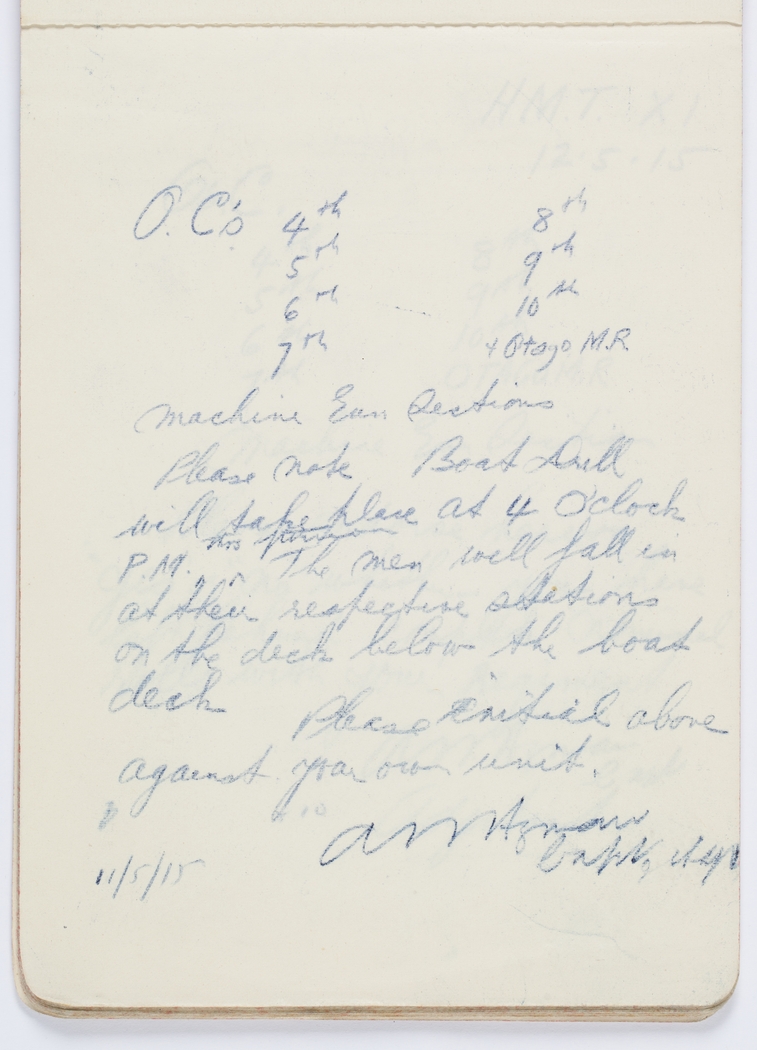 HMT. XI
12.5.15
O. C's 4th 8th
5th 9th
6th 10th
7th + Otago M.R.
Machine Gun Sections
Please note Boat Drill
will take place at 4 O'clock
P.M. this The men will fall in
at their respective stations
on the deck below the boat
deck
Please initial above
against your own unit.
Capt,
11/5/15